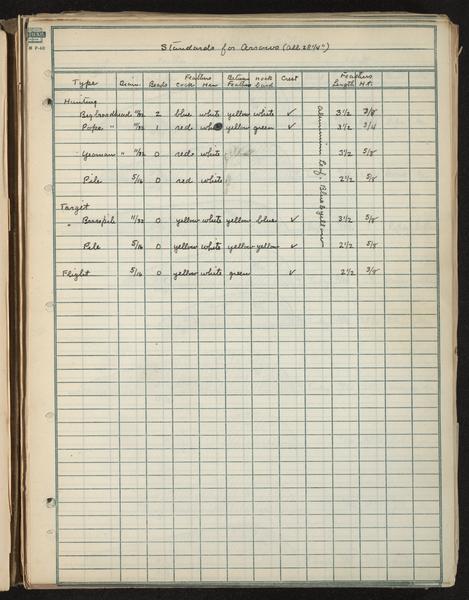 Standards for Arrows (all 28 1/4")
Type Diam. Beads Feathers Cock Hen Between Feathers Nock band Crest Feathers Length Ht.
Hunting
Big broadhead 11/32 2 blue white yellow white ✓ 3 1/2 3/8
Pope " 11/32 1 red white yellow green ✓ 3 1/2 3/4
Yeoman " 11/32 0 red white 3 1/2 5/8
Pile 5/16 0 red white 2 1/2 5/8
Aluminum Leaf, Blue & yellow
Target
" 11/32 0 yellow white yellow blue ✓ 3 1/2 5/8
Pile 5/16 0 yellow white yellow yellow ✓ 2 1/2 5/8
Flight 5/16 0 yellow white green ✓ 2 1/2 3/8